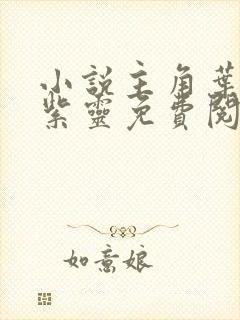 小說主角葉
紫靈免費閱
如意娘